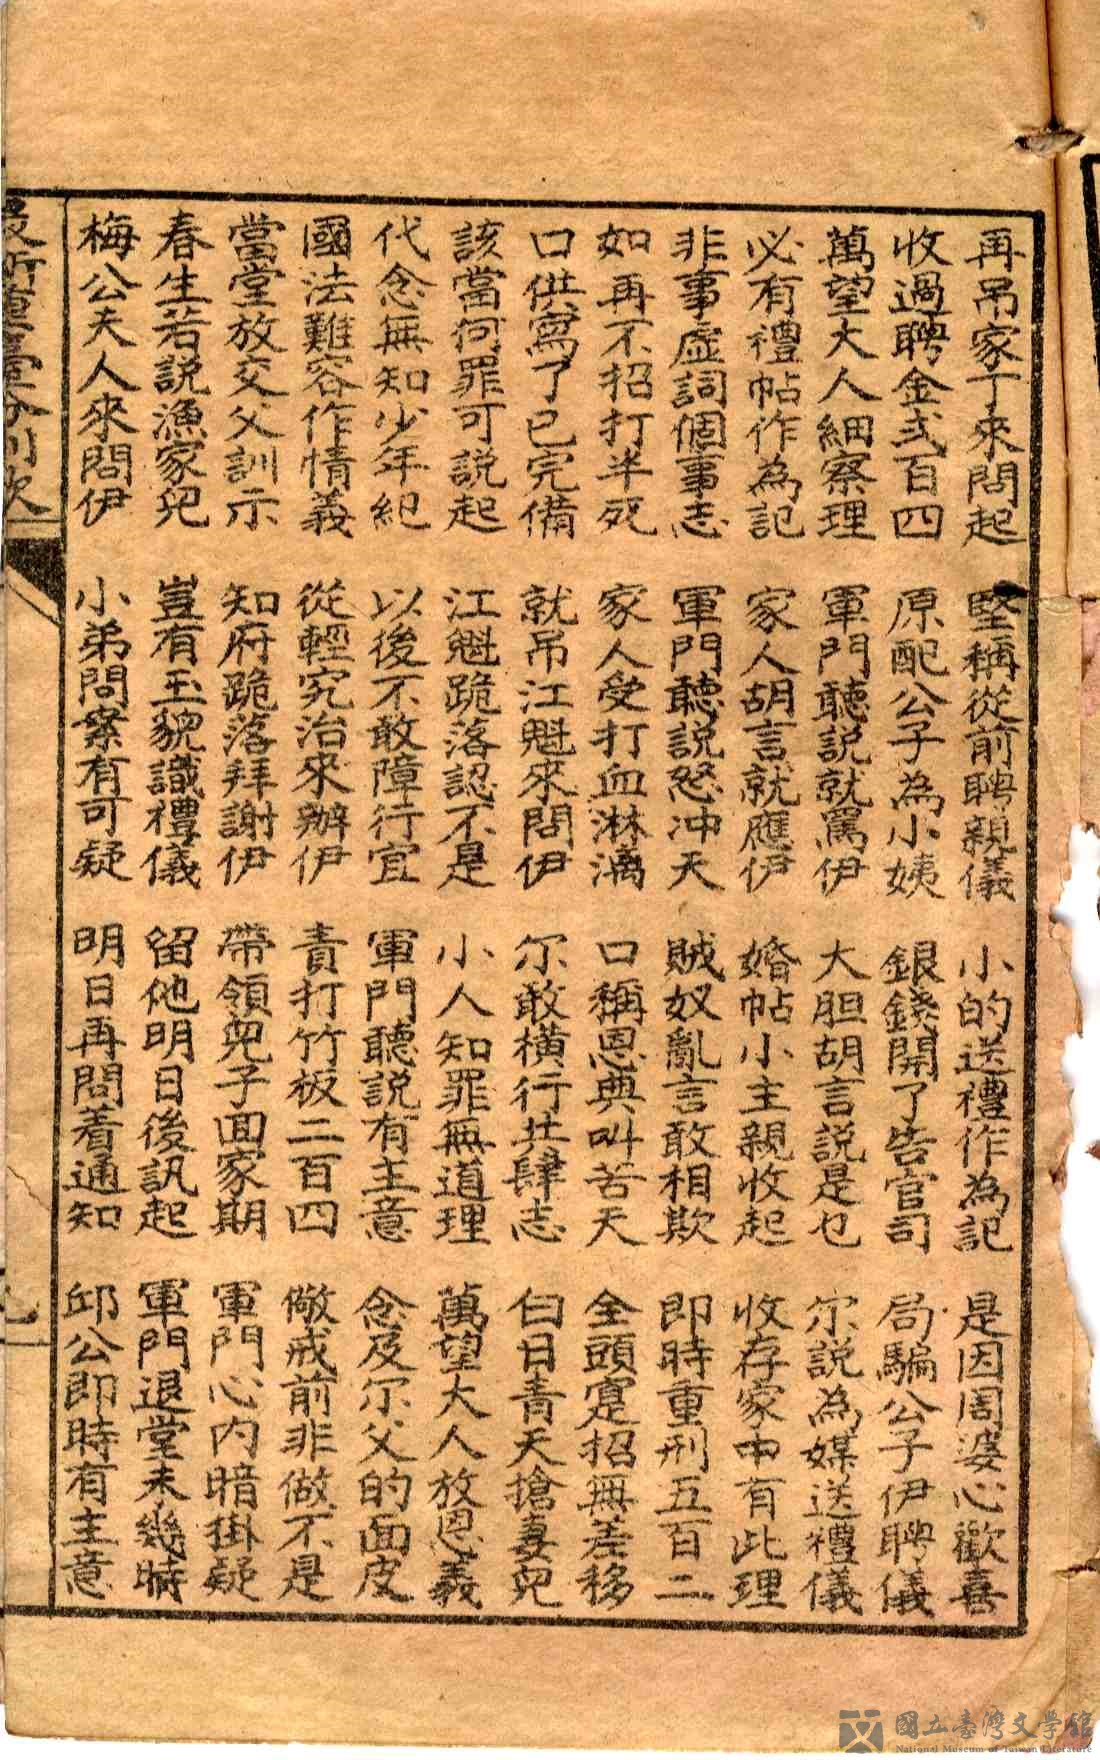 再吊家丁來問起 堅稱從前聘親儀 小的送禮作為記 是因周婆心歡喜
收過聘金弍百四 原配公子為小姨 銀錢開了告官司 局騙公子伊聘儀
萬望大人細察理 軍門聽說就罵伊 大胆胡言說是乜 尔說為媒送禮儀
必有禮帖作為記 家人胡言就應伊 婚帖小主親收起 收存家中有此理
非事虛詞個事志 軍門聽說怒冲天 賊奴亂言敢相欺 即時重刑五百二
如再不招打半死 家人受打血淋漓 口稱恩典叫苦天 全頭寔招無差移
口供寫了已完備 就吊江魁來問伊 尔敢橫行共肆志 白日青天搶妻兒
該當何罪可說起 江魁跪落認不是 小人知罪無道理 萬望大人放恩義
代念無知少年紀 以後不敢障行宜 軍門聽說有主意 念及尔父的面皮
國法難容作情義 從輕究治來辦伊 責打竹板二百四 儆戒前非做不是
當堂放交父訓示 知府跪落拜謝伊 帶領兒子回家期 軍門心內暗掛疑
春生若說漁家兒 豈有玉貌識禮儀 留他明日後訊起 軍門退堂未幾時
梅公夫人來問伊 小弟問案有可疑 明日再問着通知 邱公即時有主意
國立臺灣文學館
National Museum of Taiwan Literature